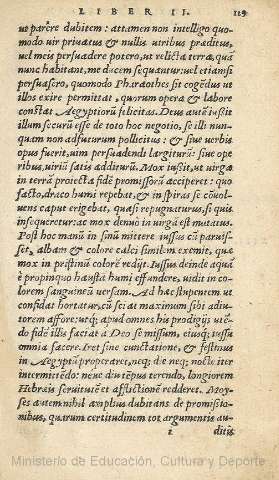 LIBER II. 119
ut parêre dubitem: attamen non intelligo quo-
modo uir priuatus & nullis uiribus præditus,
uel meis persuadere potero, ut relicta terra, quā
nunc habitant, me ducem sequantur: uel etiamsi
persuasero, quomodo Pharaothes sit cogēdus ut
illos exire permittat, quorum opera & labore
constat Aegyptiorū felicitas. Deus autē iussit
illum securū esse de toto hoc negotio, se illi nun-
quam non adfuturum pollicitus: & siue uerbis
opus fuerit, uim persuadendi largiturū: siue ope
ribus, uiriū satis additurū. Mox iussit, ut uirgā
in terrā proiectā fidē promissorū acciperet: quo
facto, draco humi repebat, & in spiras se cōuol-
uens caput erigebat, quasi repugnaturus, si quis
insequeretur: ac mox denuo in uirgā est mutatus.
Post hoc manū in sinū mittere iussus cū paruis-
set, albam & colore calci similem exemit, quæ
mox in pristinū colorē redijt. Iussus deinde aquā
è propinquo haustā humi effundere, uidit in co-
lorem sanguineū uersam. Ad hæc stupentem ut
confidat hortatur, cū sciat maximum sibi adiu-
torem affore: utq; apud omnes his prodigijs utē-
do fidē illis faciat a Deo se missum, eiusq; iussa
omnia facere. Fret sine cunctatione, & festinus
in Aegyptū properaret, neq; die neq; nocte iter
intermittēdo: neue diu tēpus terendo, longiorem
Hebræis seruitutē et afflictionē redderet. Moy-
ses autem nihil amplius dubitans de promissio-
nibus, quarum certitudinem tot argumentis au-
z ditis
Ministerio de Educación, Cultura y Deporte